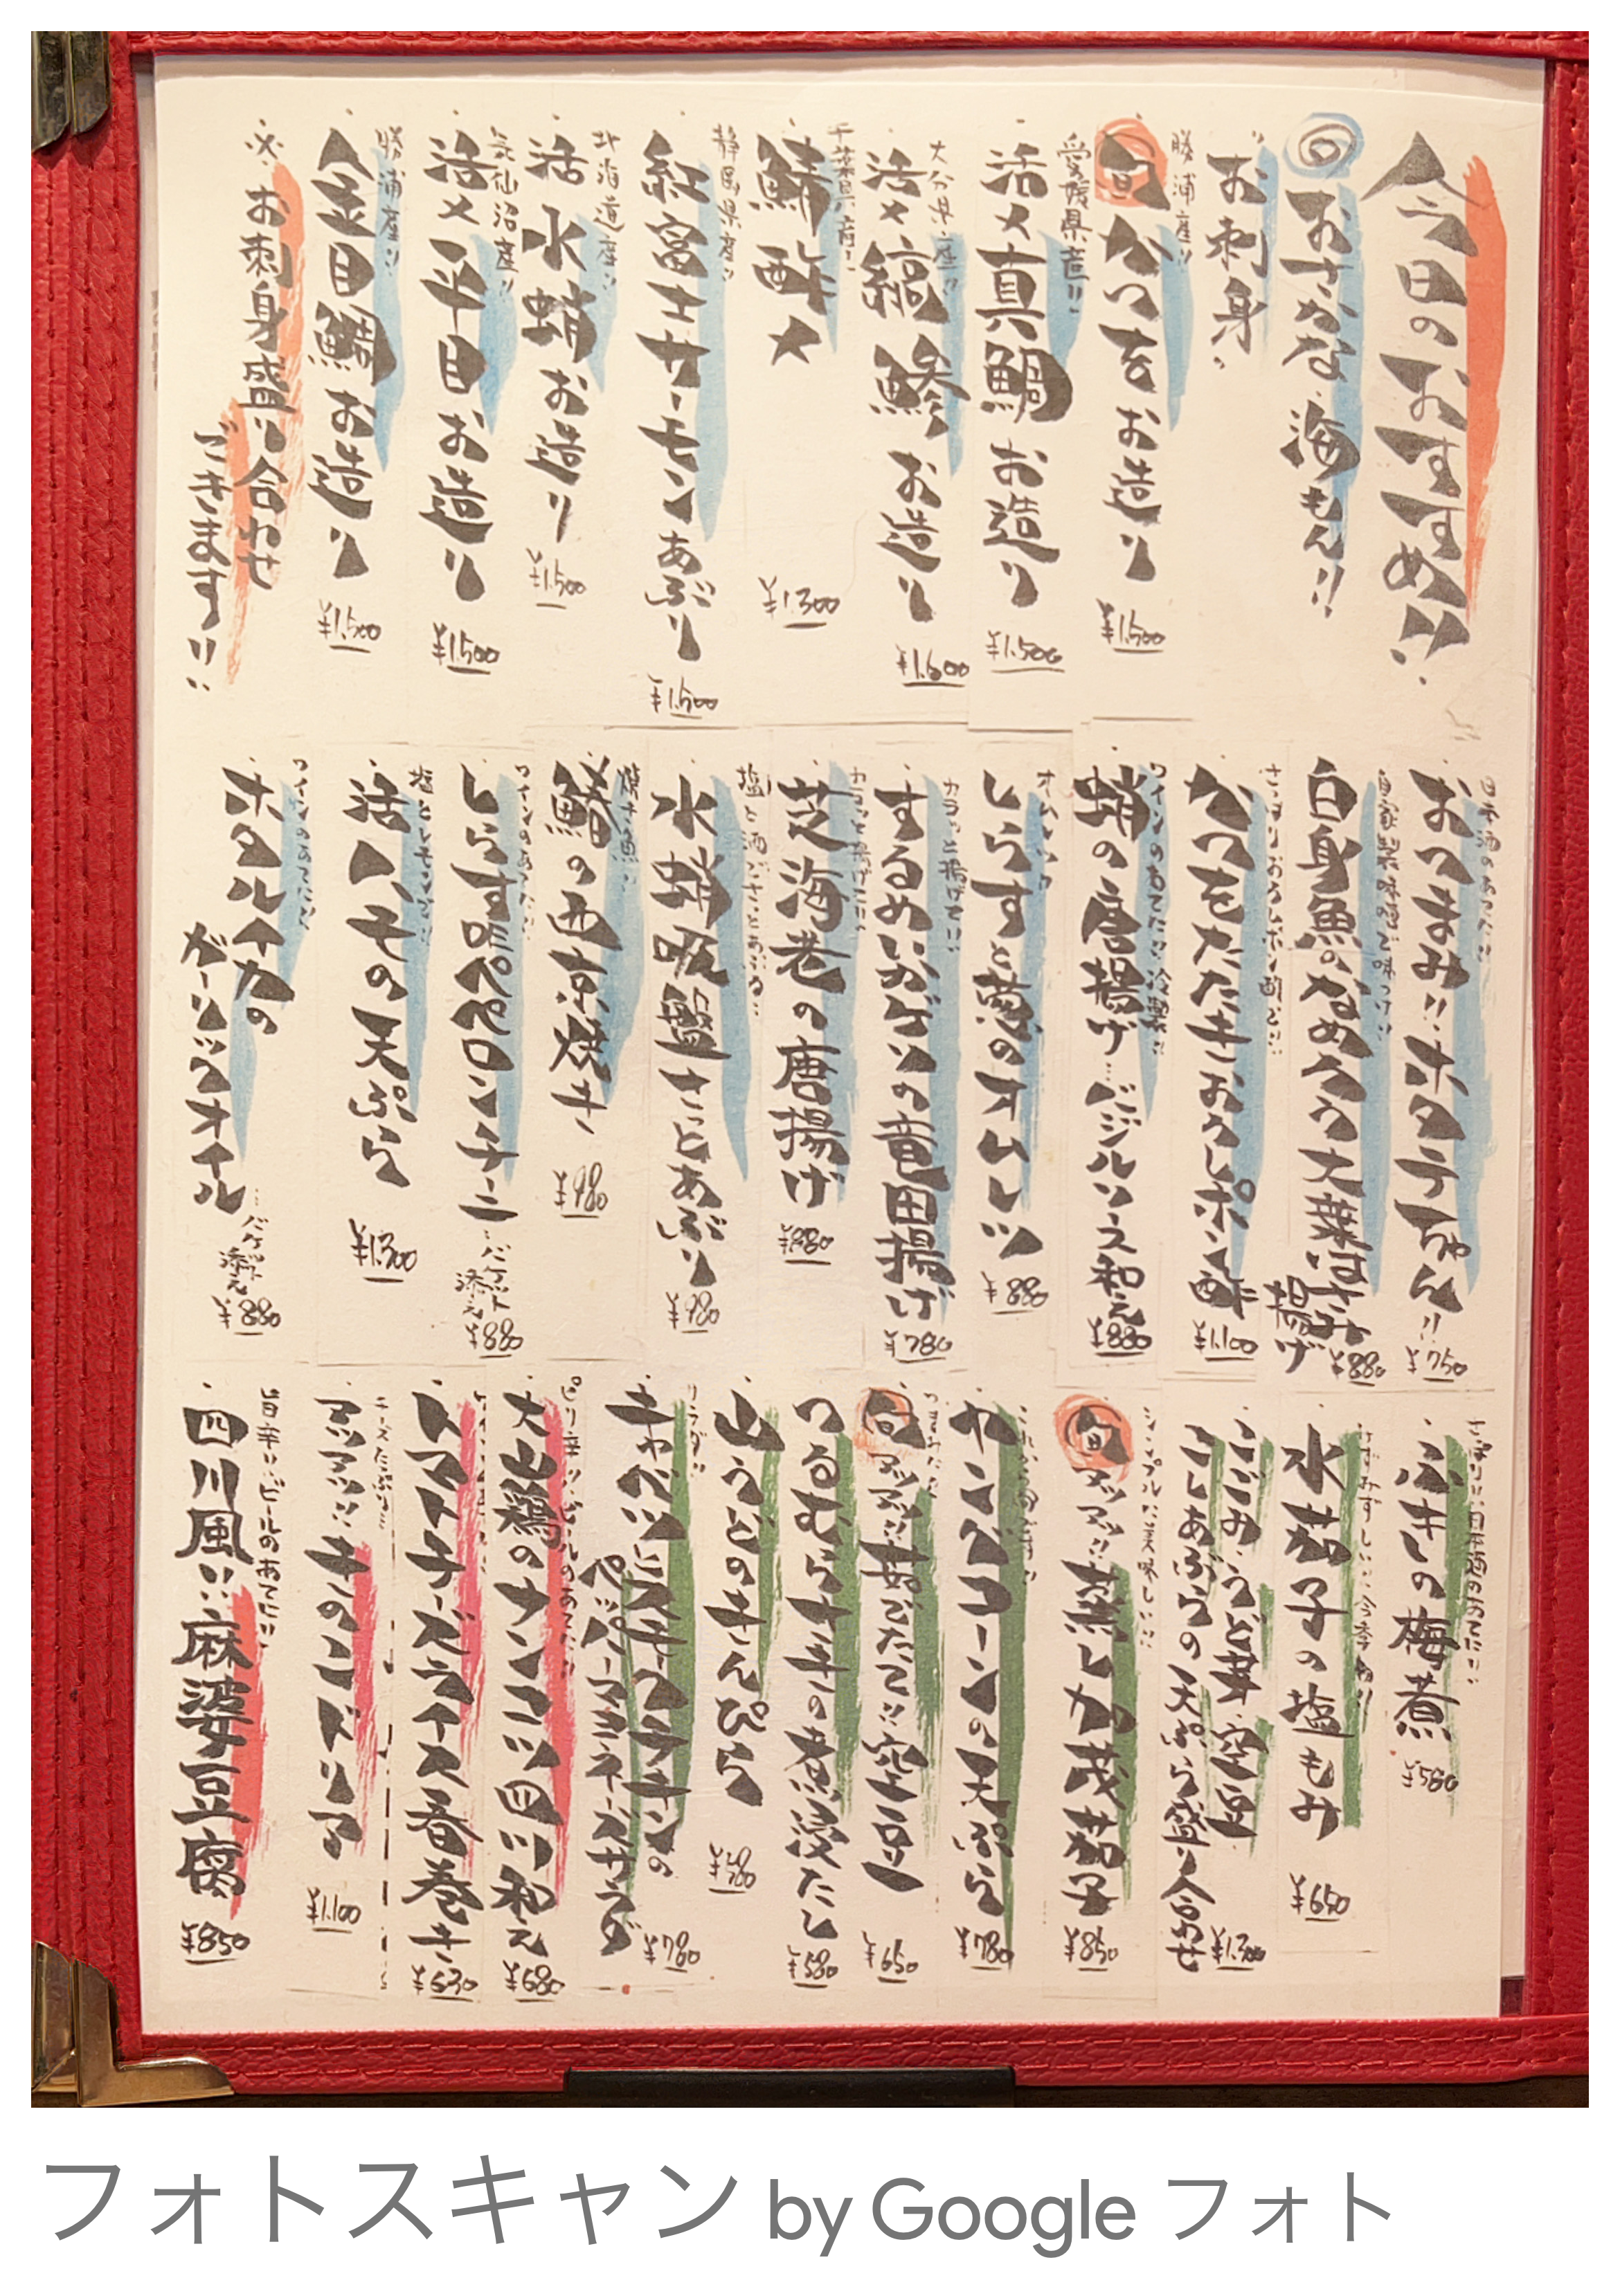 今日のおすすめ!!
◎おさかな 海もん!!
お刺身
勝浦産!!
旬 かつをお造り
¥1,500
愛媛県産!!
活〆真鯛お造り
¥1,500
大分県産!!
活〆縞鯵お造り
¥1,600
千葉県産!!
鯖〆酢
¥1,300
静岡県産!!
紅富士サーモンあぶり
¥1,500
北海道産!!
活水蛸お造り
¥1,500
気仙沼産!!
活〆平目お造り
¥1,500
勝浦産!!
金目鯛お造り
¥1,500
※お刺身盛り合わせ
できます!!
日本酒のあてに!!
おつまみ!! ホタテちゃん!!
¥750
自家製味噌で味つけ!!
白身魚のなめろう大葉はさみ
揚げ
¥880
さっぱりおろしポン酢で!!
かつをたたきおろしポン酢
¥1,100
ワインのあてに!! 冷製!!
蛸の唐揚げ…バジルソース和え
¥880
オムレツ
しらすと葱のオムレツ
¥880
カラッと揚げて!!
するめいかゲソの竜田揚げ
¥780
カラッと揚げて!!
芝海老の唐揚げ
¥880
塩と酒でさっとあぶる!!
水蛸吸盤さっとあぶり
¥980
焼き魚!!
鰆の西京焼き
¥980
ワインのあてに!!
しらすのペペロンチーニ
…バケット
添え
¥880
塩とレモンで!!
活ハモの天ぷら
¥1,300
ワインのあてに!!
ホタルイカの
ガーリックオイル
…バケット
添え
¥880
さっぱり!! 日本酒のあてに!!
ふきの梅煮
¥580
みずみずしい!! 今季初!!
水茄子の塩もみ
¥650
こごみ・うど芽・空豆
こしあぶらの天ぷら盛り合わせ
¥1,300
シンプルに美味しい!!
旬 アツアツ!! 蒸し加茂茄子
¥850
ヤングコーンの天ぷら
¥780
旬 アツアツ!! 茹でたて!! 空豆
¥650
つるむらさきの煮浸たし
¥580
山うどのきんぴら
¥580
サラダ!!
キャベツとスモークチキンの
ペッパーマヨネーズサラダ
¥780
ピリ辛!! ビールのあてに!!
大山鶏のナンコツ四川和え
¥680
トマトチーズライス春巻き
¥630
チーズたっぷり!!
アツアツ!! キノコドリア
¥1,100
旨辛!! ビールのあてに!!
四川風!! 麻婆豆腐
¥850
フォトスキャン by Google フォト